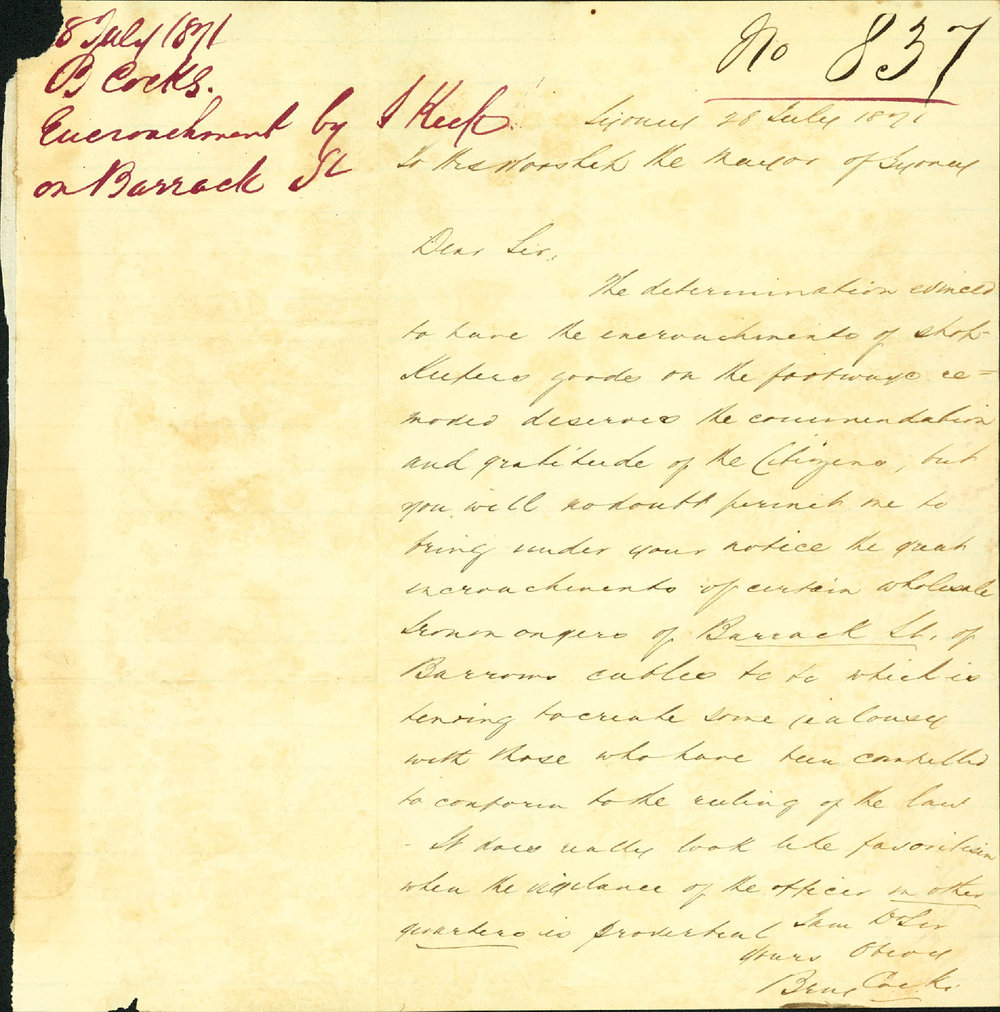 8 July 1871
B Cocks.
Encroachment by J Keep.
on Barrack St
No 837
Sydney 28 July 1871
To His Worship the Mayor of Sydney
Dear Sir,
The determination evinced
to have the encroachments of shop-
Keepers goods on the footways re=
moved deserves the commendation
and gratitude of the Citizens, but
you will no doubt permit me to
bring under your notice the great
incroachments of certain wholesale
Ironmongers of Barrack St. of
Barrows cables &c &c which is
tending to create some jealousy
with those who have been compelled
to conform to the ruling of the law
- It does really look like favoritism
when the vigilance of the officer in other
quarters is proverbial I am Dr Sir
yours Obedy
Benj Cocks